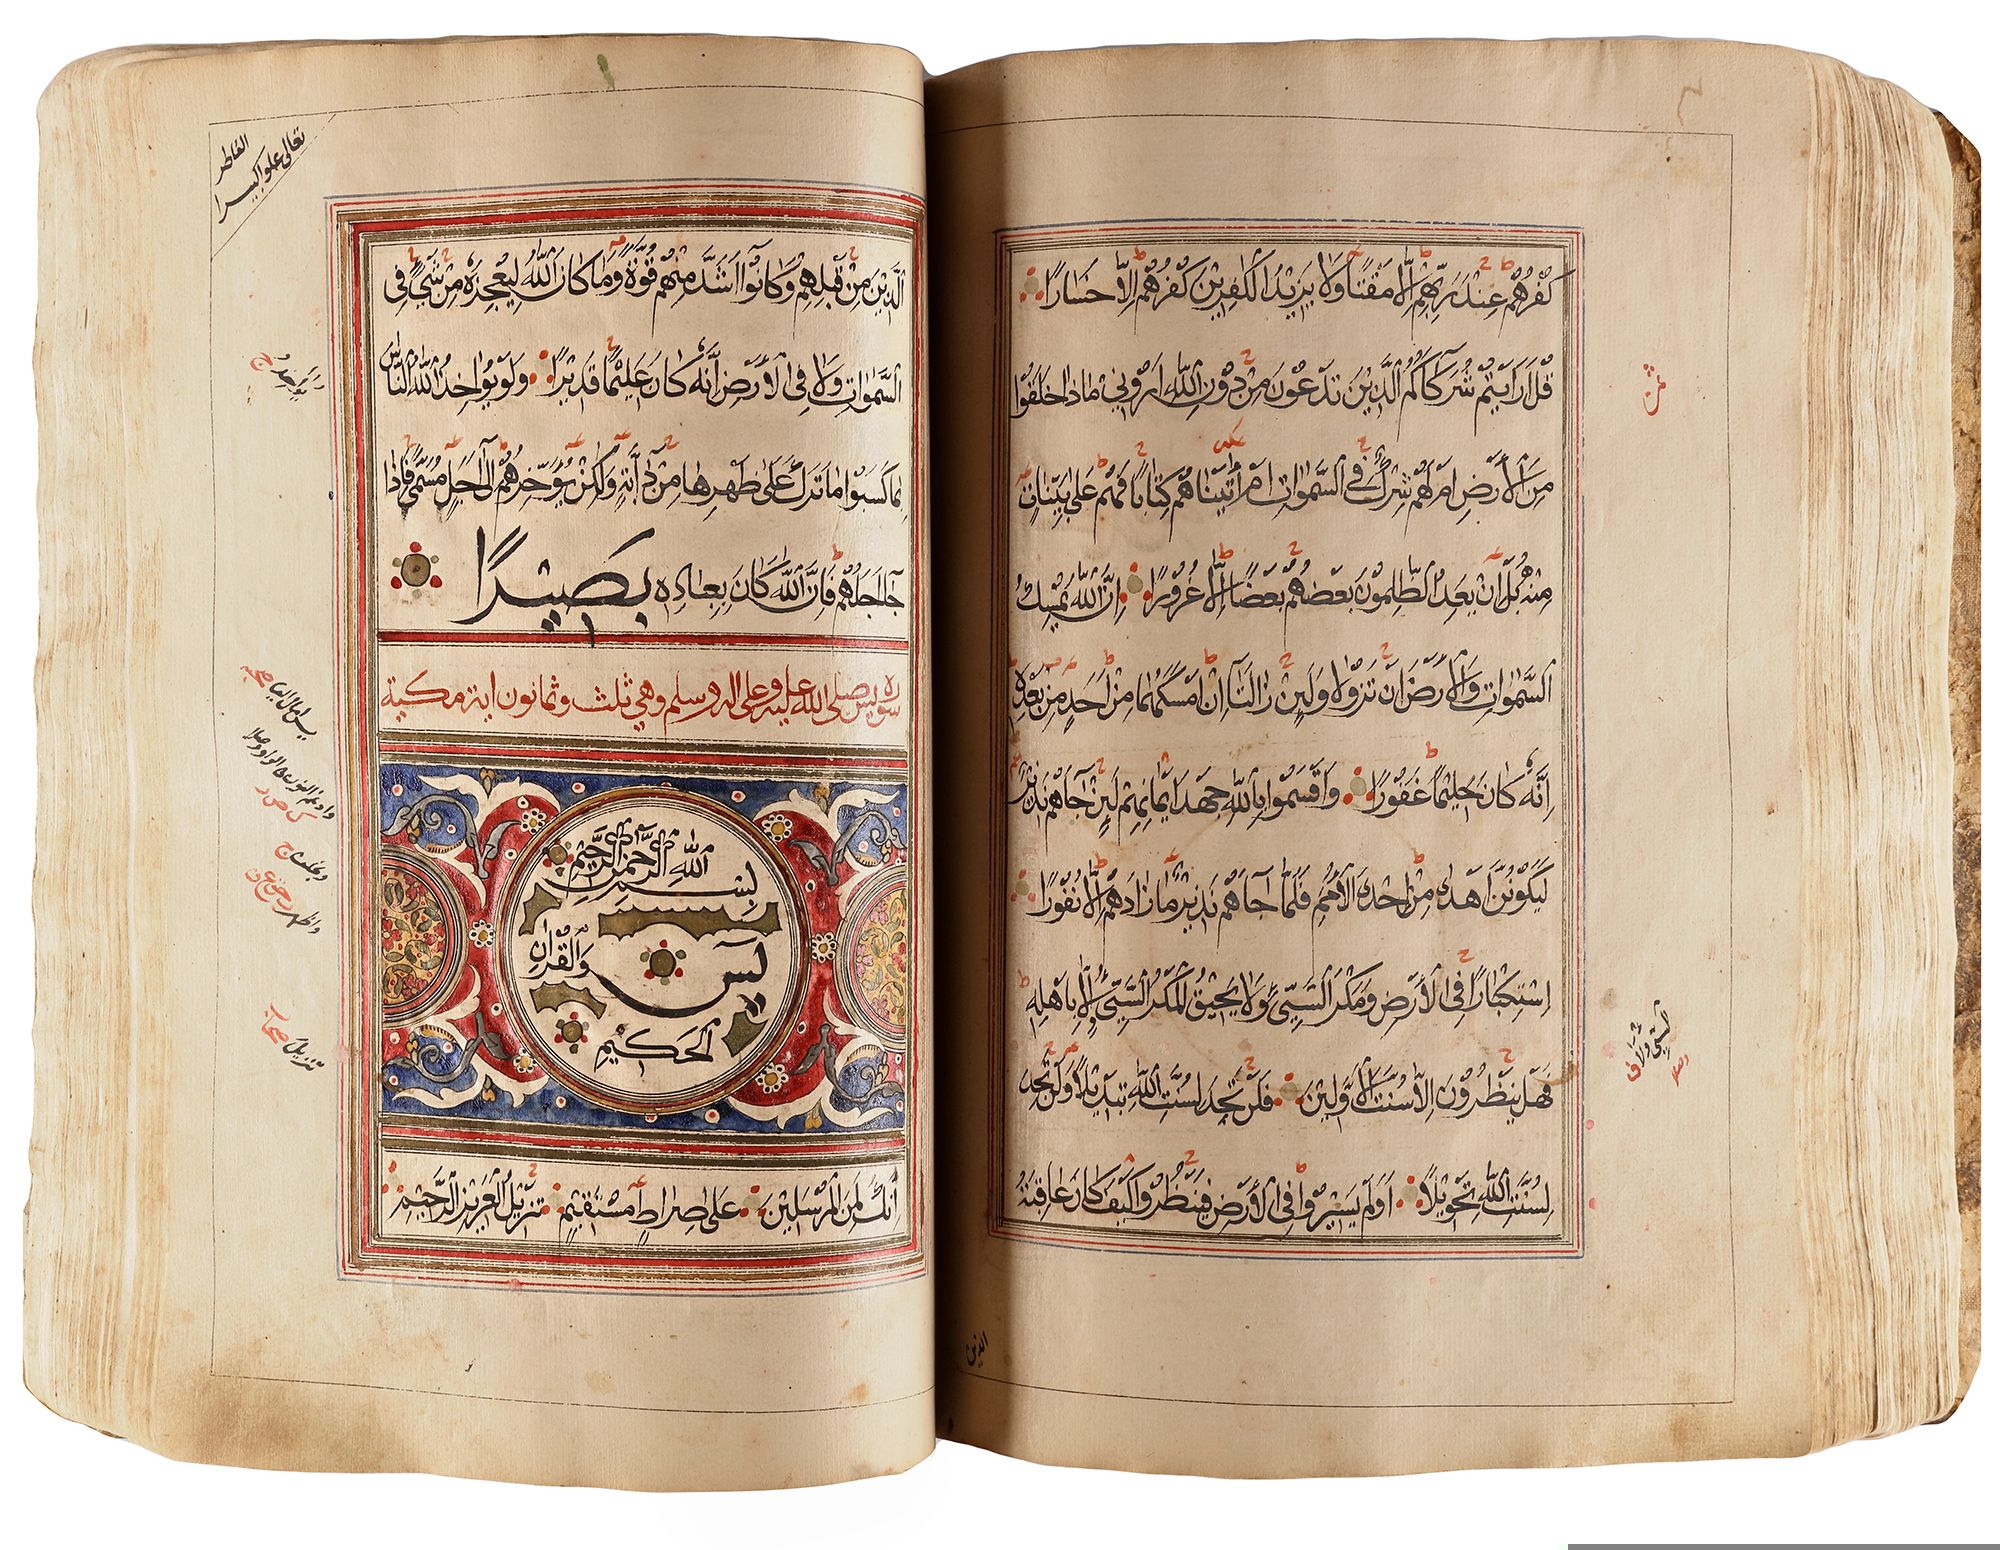 كُفْرُهُمْ عِنْدَ رَبِّهِمْ اِلَّا مَقْتًا وَلَا يَزِيْدُ الْكٰفِرِيْنَ كُفْرُهُمْ اِلَّا خَسَارًا
قُلْ اَرَاَيْتُمْ شُرَكَآءَكُمُ الَّذِيْنَ تَدْعُوْنَ مِنْ دُوْنِ اللّٰهِ اَرُوْنِيْ مَاذَا خَلَقُوْا
مِنَ الْاَرْضِ اَمْ لَهُمْ شِرْكٌ فِي السَّمٰوَاتِ اَمْ اٰتَيْنَاهُمْ كِتَابًا فَهُمْ عَلٰى بَيِّنَاتٍ
مِنْهُ بَلْ اِنْ يَعِدُ الظّٰلِمُوْنَ بَعْضُهُمْ بَعْضًا اِلَّا غُرُوْرًا اِنَّ اللّٰهَ يُمْسِكُ
السَّمٰوَاتِ وَالْاَرْضَ اَنْ تَزُوْلَا وَلَئِنْ زَالَتَآ اِنْ اَمْسَكَهُمَا مِنْ اَحَدٍ مِنْ بَعْدِهِ
اِنَّهُ كَانَ حَلِيْمًا غَفُوْرًا وَاَقْسَمُوْا بِاللّٰهِ جَهْدَ اَيْمَانِهِمْ لَئِنْ جَآءَهُمْ نَذِيْرٌ
لَيَكُوْنُنَّ اَهْدٰى مِنْ اِحْدَى الْاُمَمِ فَلَمَّا جَآءَهُمْ نَذِيْرٌ مَا زَادَهُمْ اِلَّا نُفُوْرًا
اِسْتِكْبَارًا فِي الْاَرْضِ وَمَكْرَ السَّيِّئِ وَلَا يَحِيْقُ الْمَكْرُ السَّيِّئُ اِلَّا بِاَهْلِهِ
فَهَلْ يَنْظُرُوْنَ اِلَّا سُنَّتَ الْاَوَّلِيْنَ فَلَنْ تَجِدَ لِسُنَّتِ اللّٰهِ تَبْدِيْلًا وَلَنْ تَجِدَ
لِسُنَّتِ اللّٰهِ تَحْوِيْلًا اَوَلَمْ يَسِيْرُوْا فِي الْاَرْضِ فَيَنْظُرُوْا كَيْفَ كَانَ عَاقِبَةُ
الذين
الفاطر
تعالى علوا كبيرا
الَّذِيْنَ مِنْ قَبْلِهِمْ وَكَانُوْا اَشَدَّ مِنْهُمْ قُوَّةً وَمَا كَانَ اللّٰهُ لِيُعْجِزَهُ مِنْ شَيْءٍ فِي
السَّمٰوَاتِ وَلَا فِي الْاَرْضِ اِنَّهُ كَانَ عَلِيْمًا قَدِيْرًا وَلَوْ يُؤَاخِذُ اللّٰهُ النَّاسَ
بِمَا كَسَبُوْا مَا تَرَكَ عَلٰى ظَهْرِهَا مِنْ دَآبَّةٍ وَلٰكِنْ يُؤَخِّرُهُمْ اِلٰى اَجَلٍ مُسَمًّى فَاِذَا
جَآءَ اَجَلُهُمْ فَاِنَّ اللّٰهَ كَانَ بِعِبَادِهِ بَصِيْرًا
سورة يس صلى الله عليه وعلى اله وسلم وهي ثلث وثمانون اية مكية
بِسْمِ اللّٰهِ الرَّحْمٰنِ الرَّحِيْمِ
يٰسٓ وَالْقُرْاٰنِ
الْحَكِيْمِ
اِنَّكَ لَمِنَ الْمُرْسَلِيْنَ عَلٰى صِرَاطٍ مُسْتَقِيْمٍ تَنْزِيْلُ الْعَزِيْزِ الرَّحِيْمِ
تنزيل